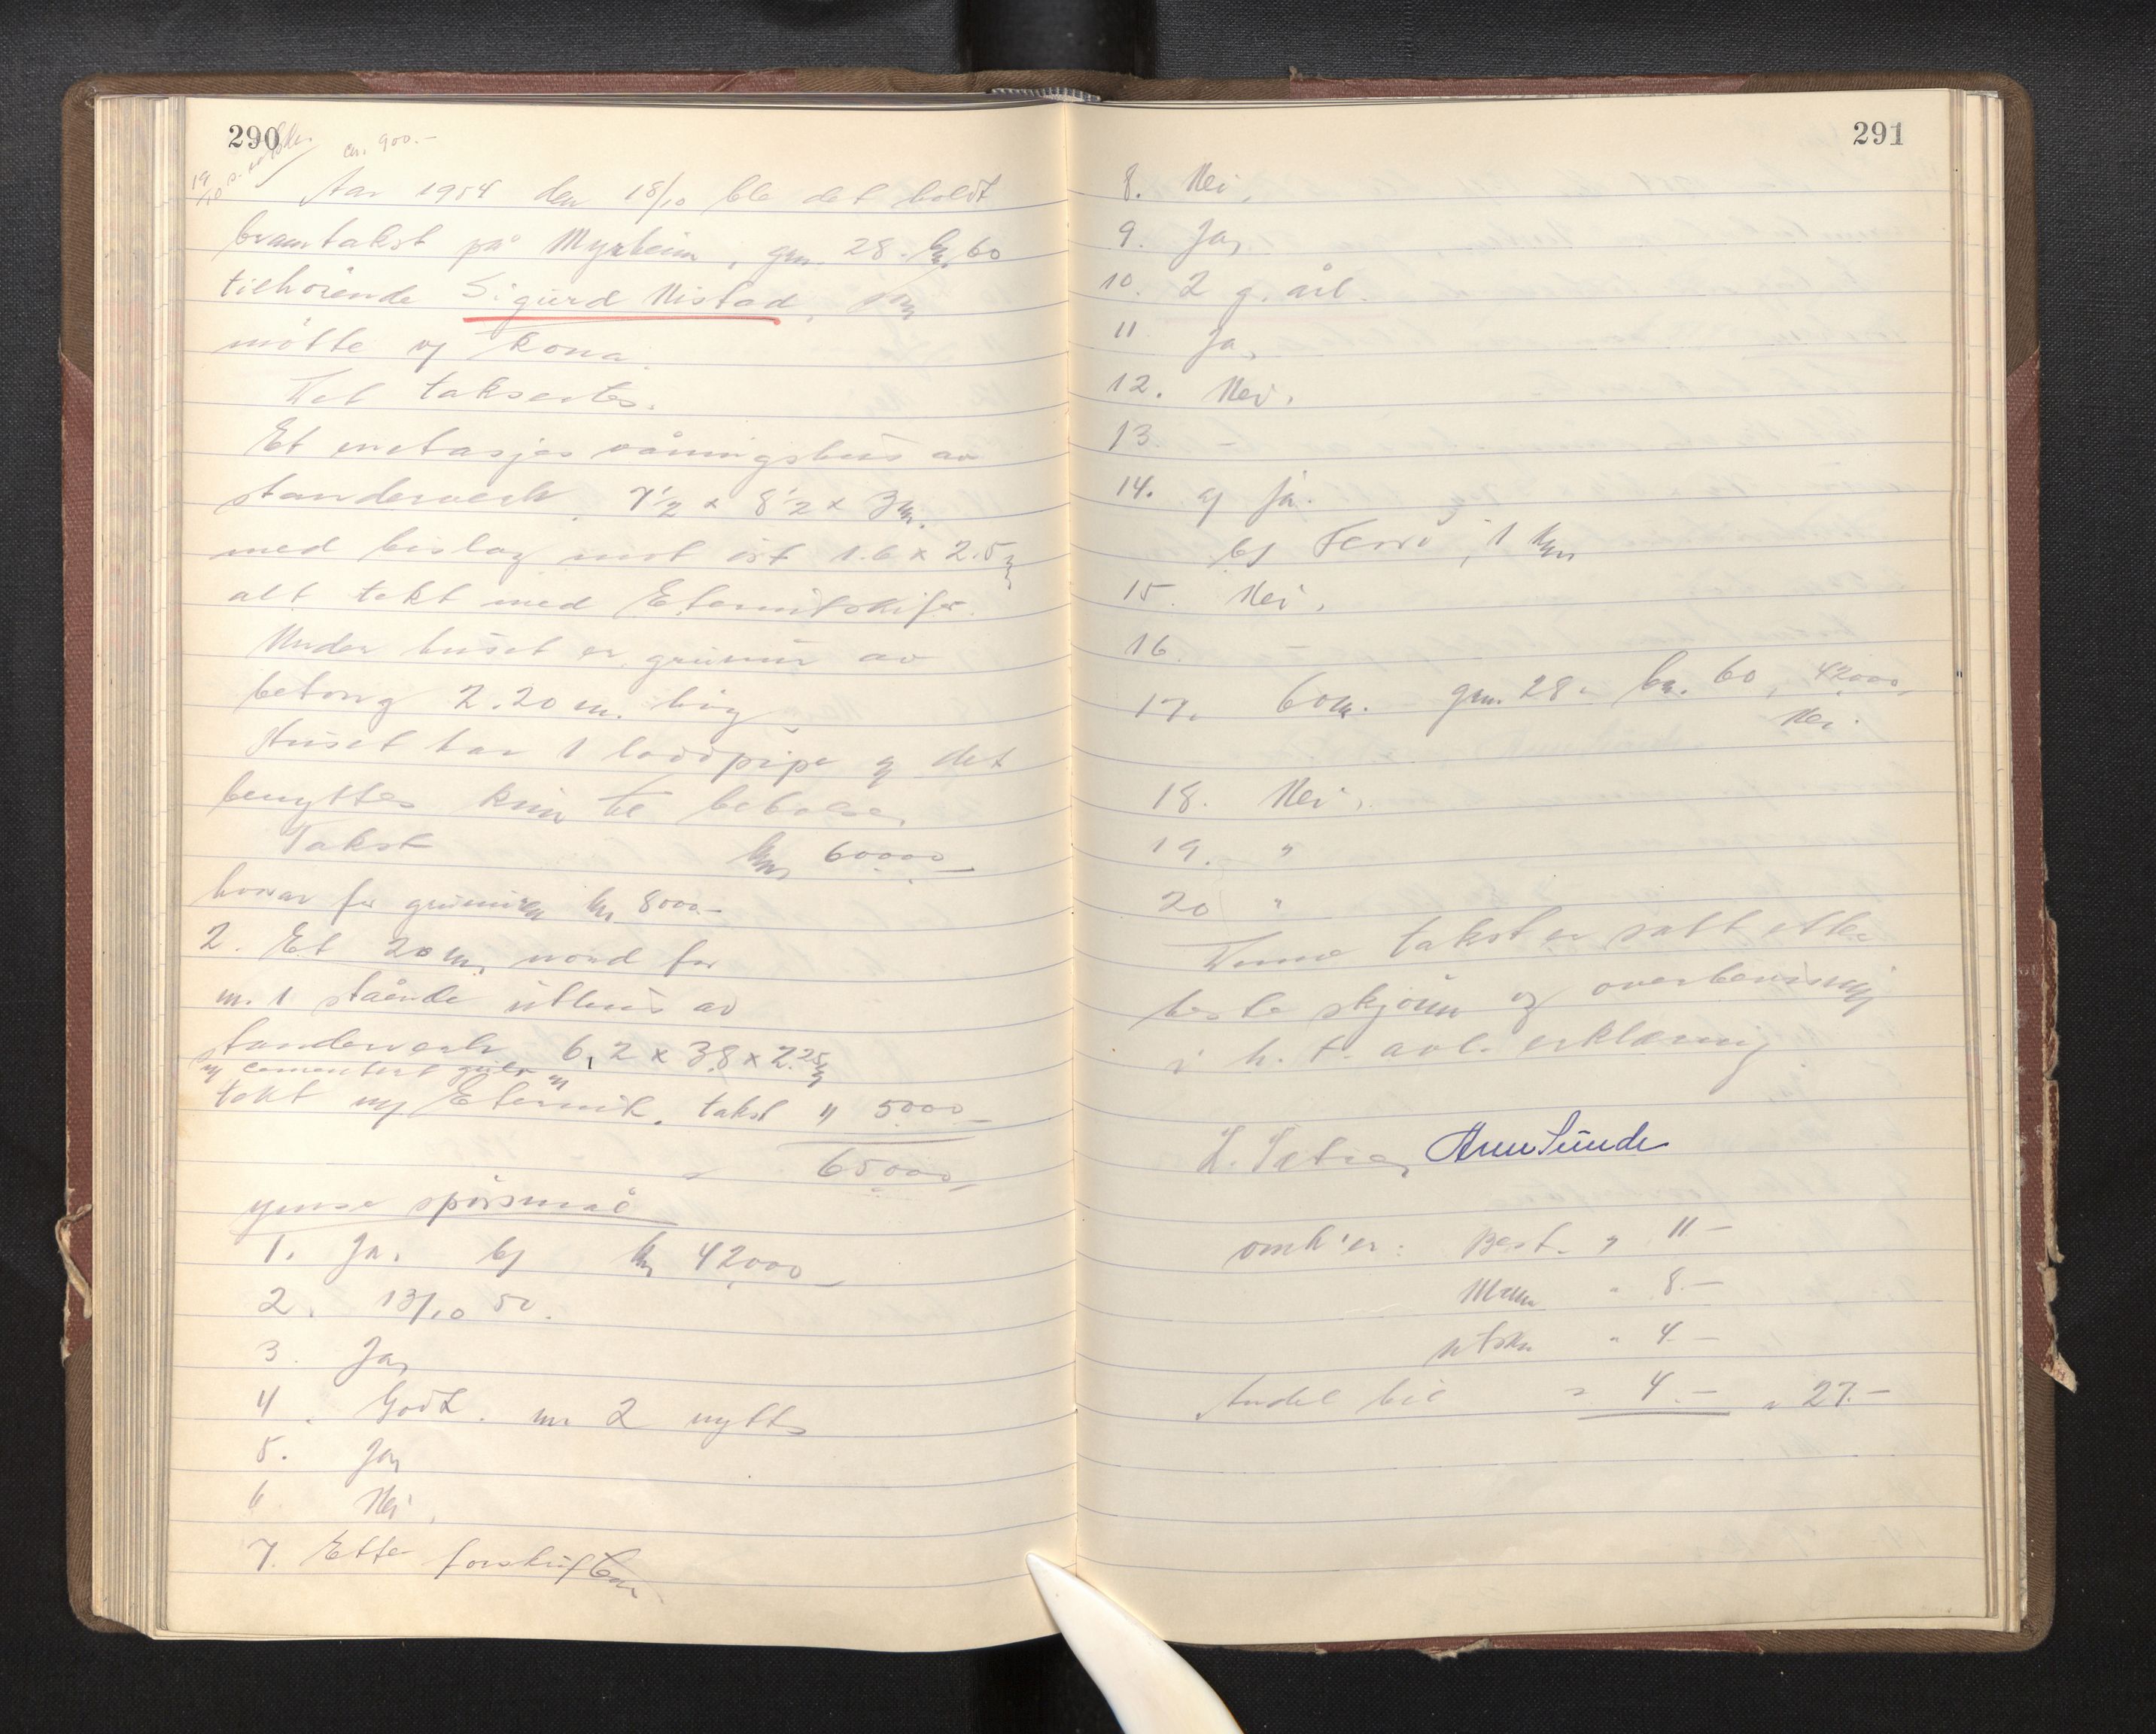 290
19/10
kr. 900.-
Aar 1954 den 18/10 ble det holdt
branntakst på Myrheim, gnr. 28. bnr. 60
tilhörende Sigurd Nistad, som
mötte og kona.
Det takseertes.
Et enetasjes våningshus av
standerverk. 7 1/2 x 8 1/2 x 3 m.
med bislag mot öst 1.6 x 2.5 m
alt tekt med Eternitskifer.
Under huset er grunnur av
betong 2.20 m. höy
Huset har 1 loddpipe og det
benyttes kun til beboelse.
Takst kr. 60000
hvorav for grunmuren kr. 8000.-
2. Et 20 m. nord for
nr. 1 stående uthus av
standerverk 6,2 x 3.8 x 2.25 m
m/ cementert gulv
tekt m/ Eternit. takst " 5000
65000
ymse spörsmål
1. Ja. b/ kr 42000
2. 13/10 50.
3. Ja,
4. Godt. nr. 2 nytt
5. Ja,
6 Nei.
7. Etter forskriften
291
8. Nei.
9. Ja,
10. 2 g. årl.
11 Ja,
12. Nei.
13. -
14. a/ ja.
b/ 1 km
15. Nei.
16. -
17. 60 m. gnr. 28. bnr. 60, 42000
Nei.
18. Nei.
19. "
20 "
Denne takst er satt etter
beste skjönn og overbevisning
i h. t. avl. erklæring
L. Sætre, Arne Sunde
omk'er: Best. " 11 -
Mann " 8.-
utskr " 4.-
Andel bil " 4.- " 27.-